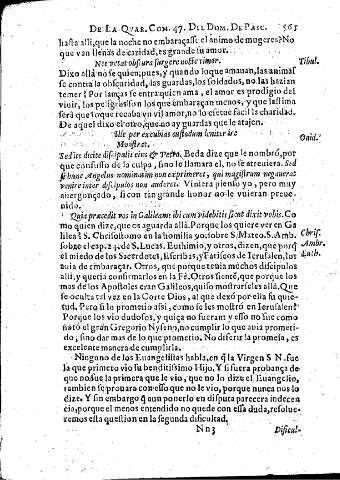 DE LA QUAR. COM. 47. DEL DOM. DE PASC. 565
hasta alli, que la noche no embaraçasse el animo de mugeres? No
que van llenas de caridad, es grande su amor.
Nec vetat obscura surgere nocte timor. Tibul.
Dixo allà no se quien, pues, y quando los que amauan, las animas
se contra la obscuridad, las guardas, los soldados, no las hazian
temer? Por lanças se entra quien ama, el amor es prodigio del
viuir, los peligros son los que embaraçan menos, y que lastima
serà que lo que recabaua vn vil amor, no los este facil la charidad.
De aquel dixo el otro, que no ay guardas que le atajen.
Ille per excubias custodum leniter ire
Monstrat. Ouid.
Sed ite dicite discipulis eius & Petro. Beda dize que le nombrò, por
que confusso de la culpa, sino le llamara el, no se atreuiera. Sed
si hunc Angelus nominatim non exprimeret, qui magistrum negauerat
venire inter discipulos non auderet. Viniera pienso yo, pero muy
abergonçado, si con tan grande honor no le vuieran preue-
nido.
Quia præcedit vos in Galileam: ibi eum videbitis sicut dixit vobis. Co
mo quien dize, que os aguarda allà. Porque los quiere ver en Ga
lilea? S. Chrisostomo en la homilia 90. sobre S. Mateo. S. Amb. Chris.
sobre el cap. 24. de S. Lucas. Euthimio, y otros, dizen, que porq̃ Ambr.
el miedo de los Sacerdotes, Escribas, y Fariseos de Ierusalen, los Euth.
auia de embaraçar. Otros, que porque tenia muchos discipulos
alli, y queria confirmarlos en la Fè. Otros siente, que porque los
mas de los Apostoles eran Galileos, quiso mostrarseles allà. Que
se oculta tal vez en la Corte Dios, al que dexò por ella su quie-
tud. Pero si lo prometio assi, como se les mostrò en Ierusalen?
Porque los vio dudosos, y quiça no fueran y esso no fue como
notò el gran Gregorio Nyseno, no cumplir lo que auia prometi-
do, sino dar mas de lo que prometio. No diferir la promesa, es
excelente manera de cumplirla.
Ninguno de los Euangelistas habla, en q̃ la Virgen S N. fue
la que primero vio su benditissimo Hijo, Y si fuera probança de
que no fue la primera que le vio, que no lo dize el Euangelio,
tambien se prouara con esso que no le vio, porque nunca nos lo
dize. Y sin embargo q̃ aun ponerlo en disputa pareciera indecen
cia, porque el menos entendido no quede con essa duda, resolue-
remos esta question en la segunda dificultad.
Nn3 Dificul-